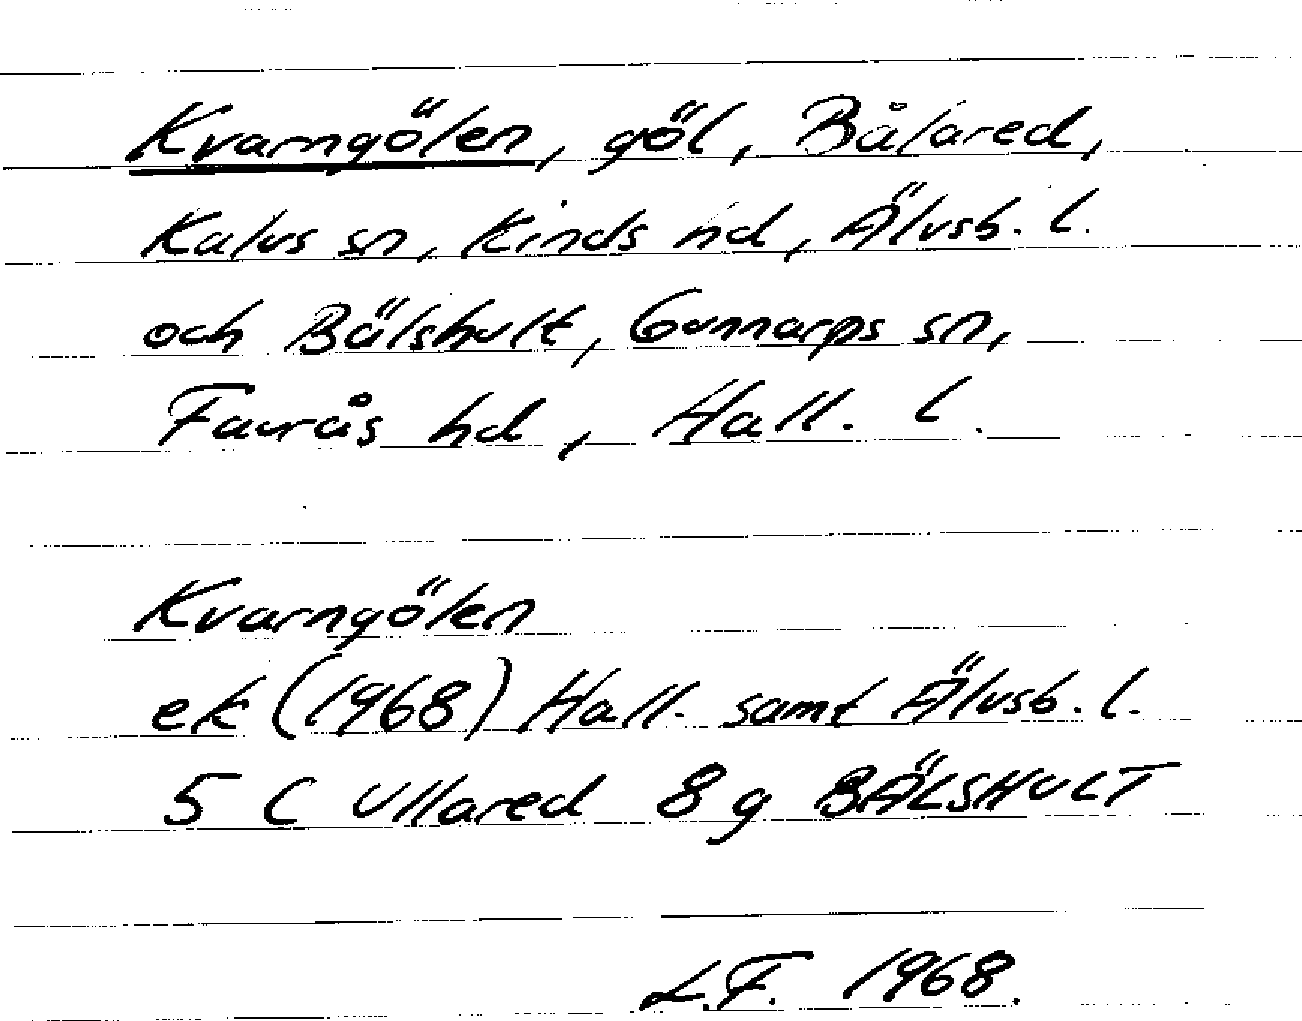 Kvarngölen, göl, Bålared,
Kalvs sn, Kinds hd, Älvsb. l.
och Bälshult, Gunnarps sn,
Faurås hd, Hall. l.
Kvarngölen
ek (1968) Hall. samt Älvsb. l.
5 C Ullared 8 g BÄLSHULT
L.F. 1968.